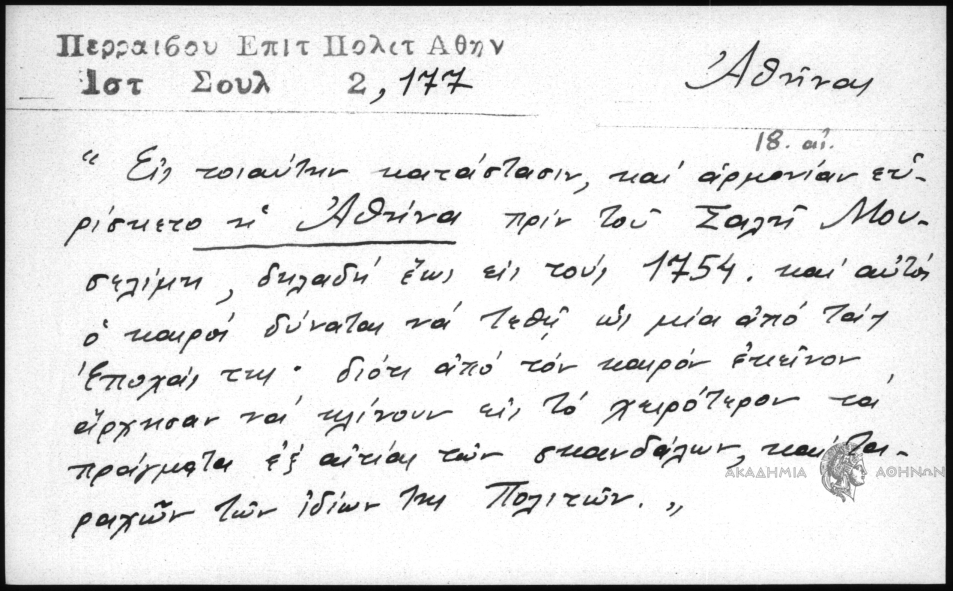 Περραιβου Επιτ Πολιτ Αθην
Ιστ Σουλ 2, 177
Ἀθῆναι
18. αἰ.
"Εἰς τοιαύτην κατάστασιν, καί ἁρμονίαν εὑ-
ρίσκετο ἡ Ἀθήνα πρίν τοῦ Σαλῆ Μου-
σελίμη, δηλαδή ἕως εἰς τούς 1754. καί αὐτός
ὁ καιρός δύναται νά τεθῇ ὡς μία ἀπό τάς
Ἐποχάς της· διότι ἀπό τόν καιρόν ἐκεῖνον
ἄρχησαν νά κλίνουν εἰς τό χειρότερον τά
πράγματα ἐξ αἰτίας τῶν σκανδάλων, καί τα-
ραχῶν τῶν ἰδίων της Πολιτῶν."
ΑΚΑΔΗΜΙΑ ΑΘΗΝΩΝ